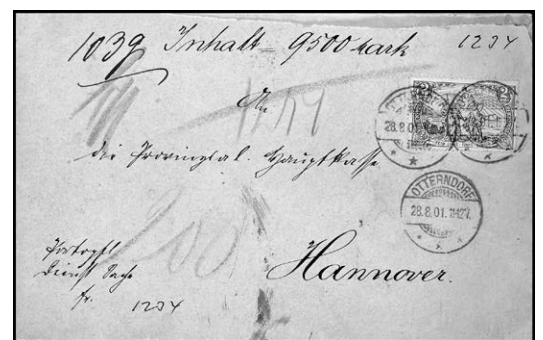 1039 Inhalt 9500 Mark 1234
An
28.8.01.
1219
die Provinzial. Hauptkasse
OTTERNDORF
28.8.01. 2-12V.
Hannover.
Portopfl.
Dienst Sache
fr. 1234